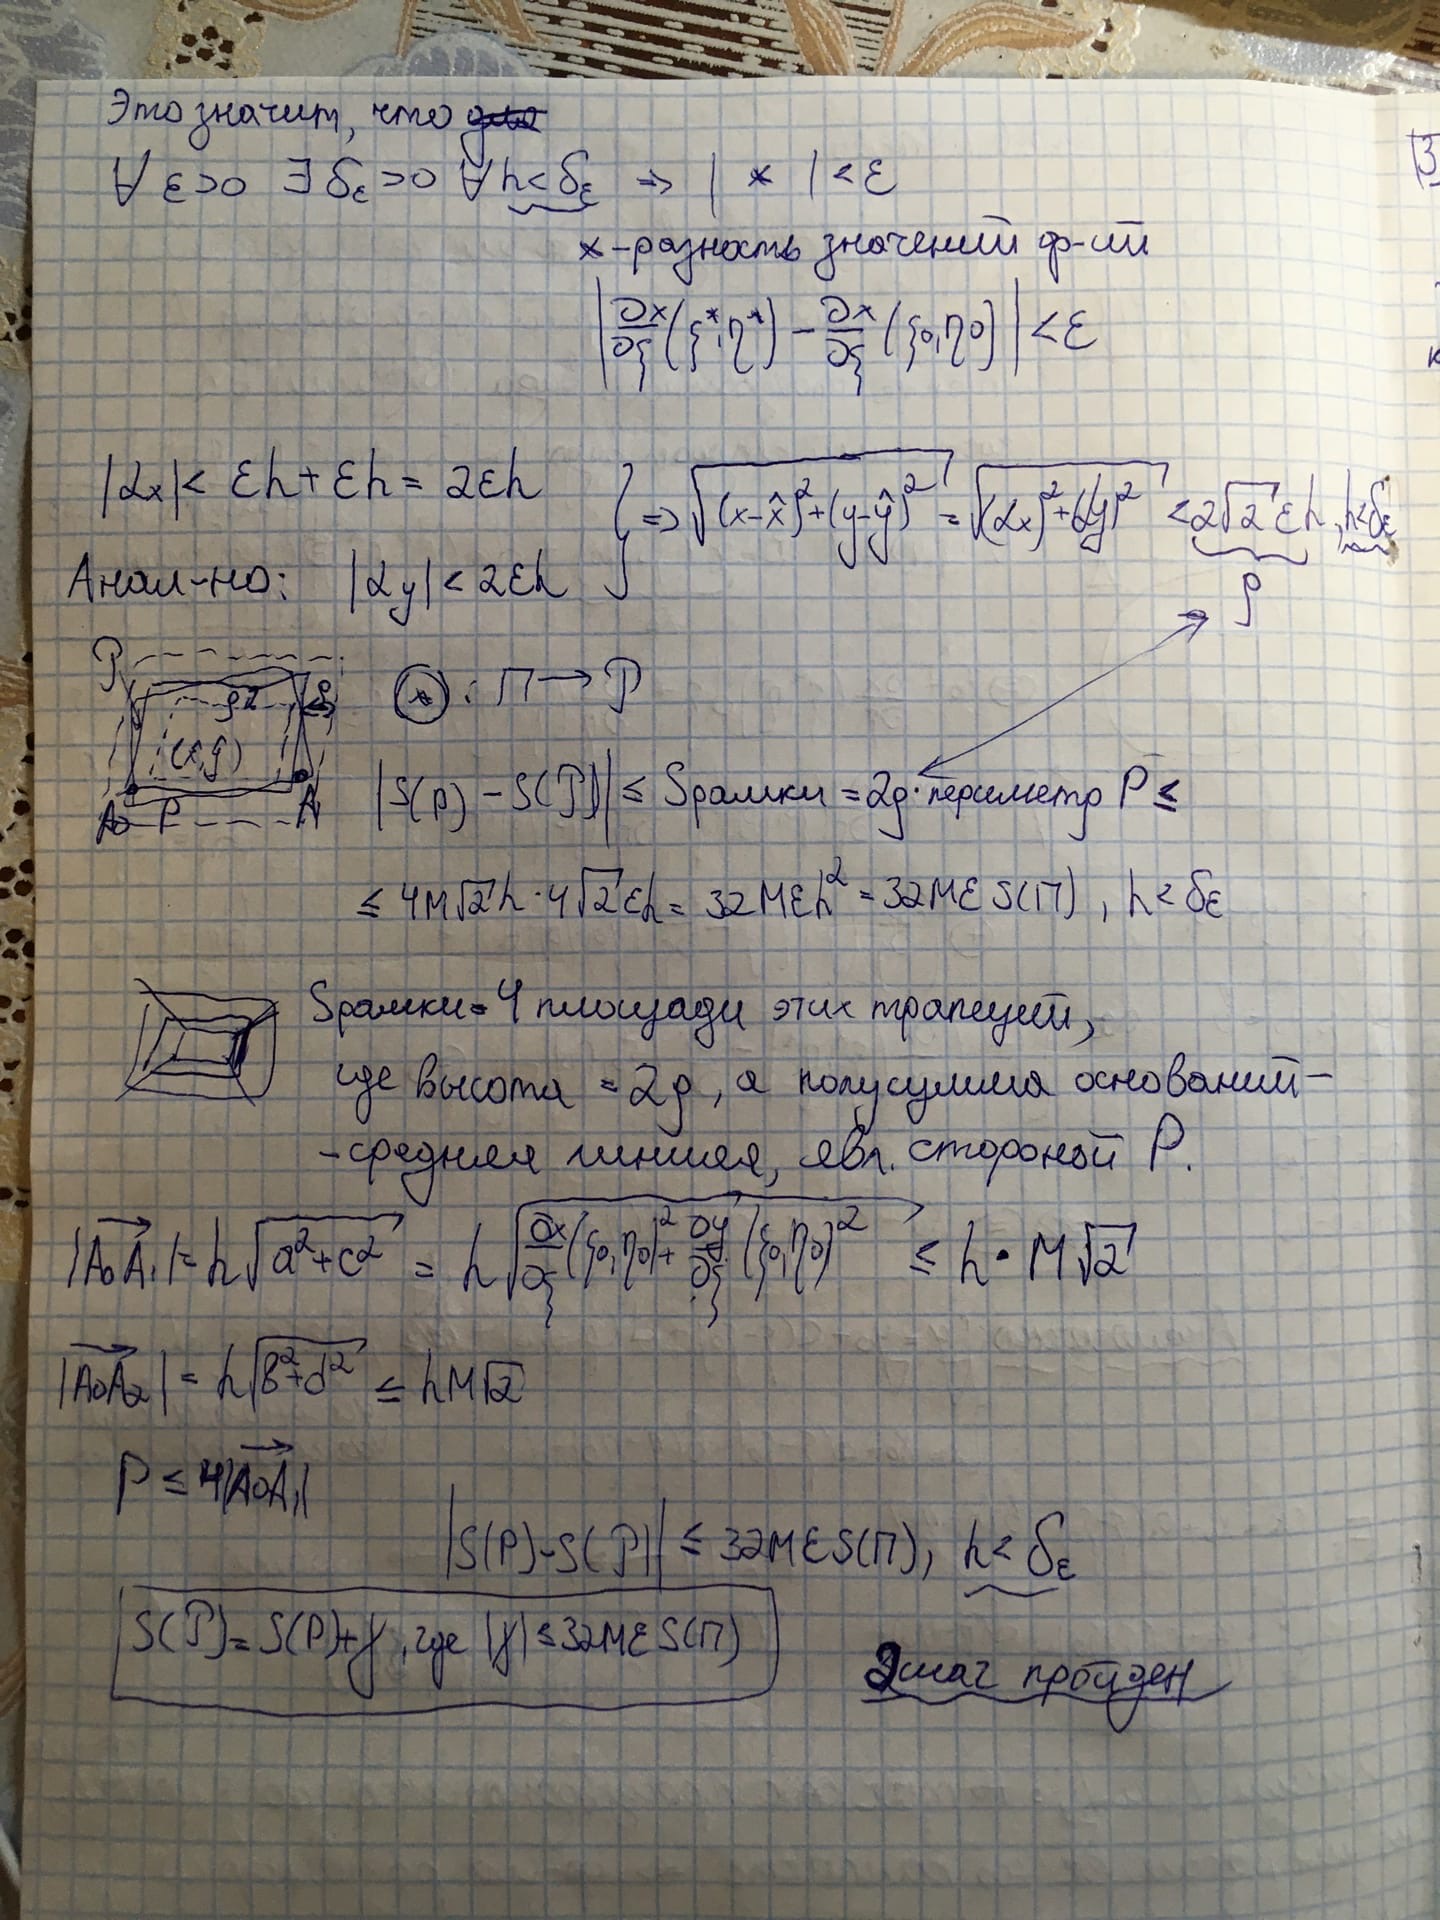 Это значит, что
∀ ε>0 ∃ δε>0 ∀ h<δε ⇒ | * | < ε
* - разность значений ф-ий
|∂x/∂ξ (ξ*, η*) - ∂x/∂ξ (ξ0, η0)| < ε
|αx| < εh + εh = 2εh
Анал-но: |αy| < 2εh
} ⇒ √((x-x̂)²+(y-ŷ)²) = √((αx)²+(αy)²) < 2√2 εh, h<δε
ρ
(*) : П → 𝒫
𝒫 ρ
A0 P A1
|S(P) - S(𝒫)| ≤ Sрамки = 2ρ·периметр P ≤
≤ 4M√2 h · 4√2 εh = 32Mεh² = 32Mε S(П), h<δε
Sрамки = 4 площади этих трапеций,
где высота = 2ρ, а полусумма оснований -
- средняя линия, явл. стороной P.
|A0A1| = h√(a²+c²) = h√(∂x/∂ξ (ξ0, η0)² + ∂y/∂ξ (ξ0, η0)²) ≤ h · M√2
|A0A2| = h√(b²+d²) ≤ hM√2
P ≤ 4|A0A1|
|S(P) - S(𝒫)| ≤ 32MεS(П), h<δε
S(𝒫) = S(P)+γ, где |γ| ≤ 32MεS(П)
2 шаг пройден